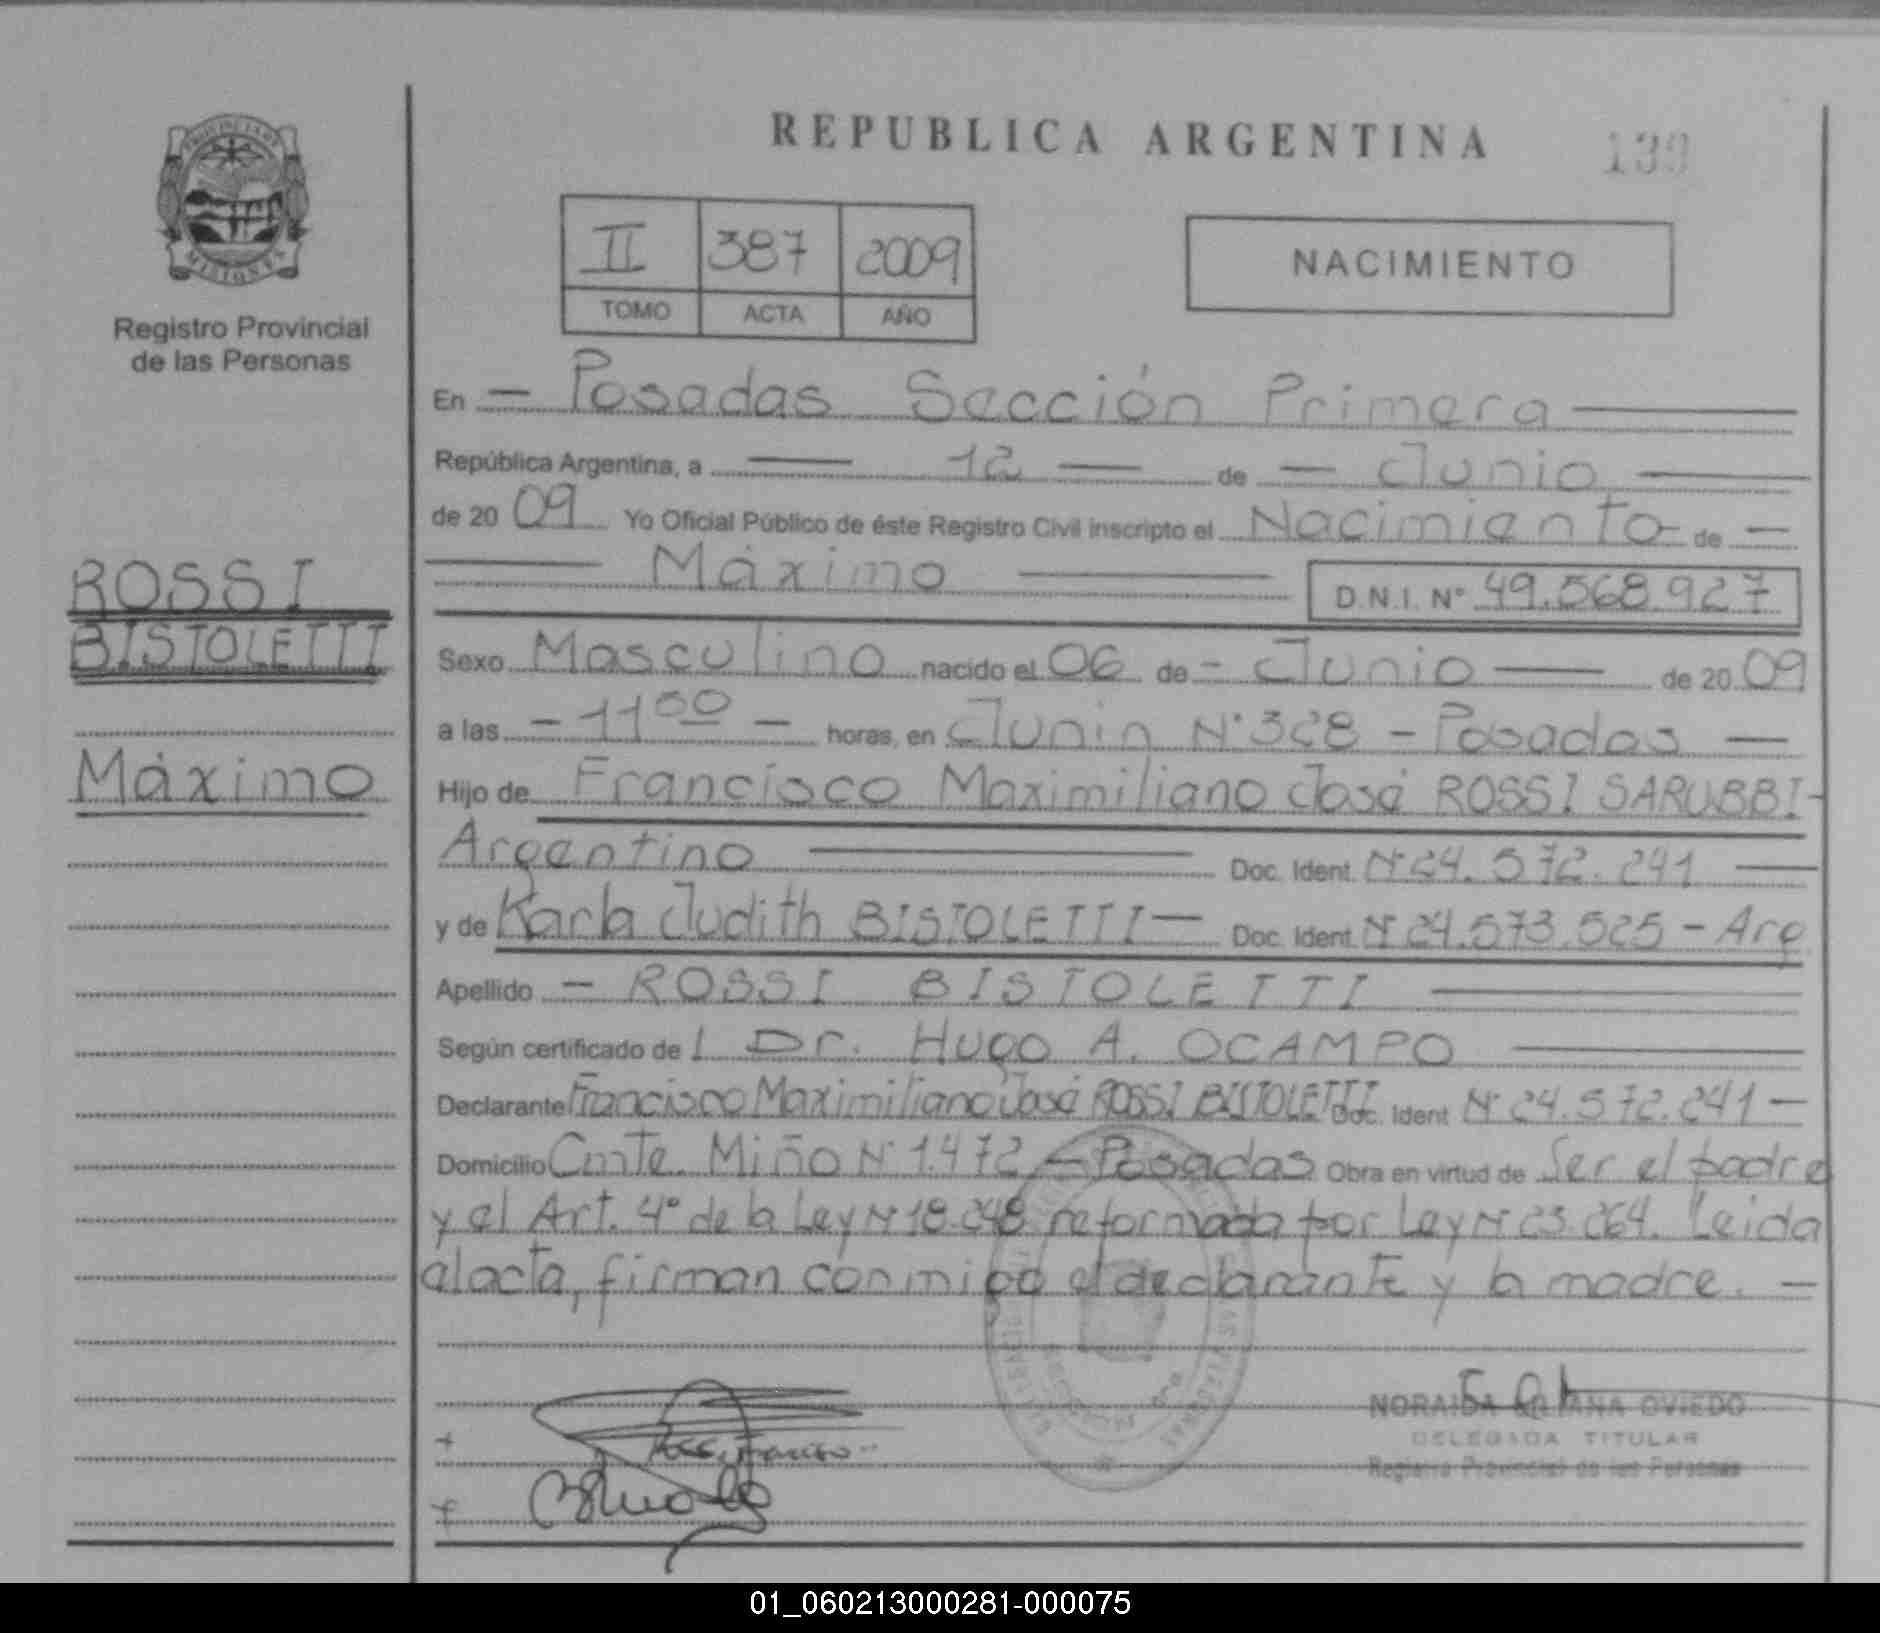 PROVINCIA DE
MISIONES
Registro Provincial
de las Personas
ROSSI
BISTOLETTI
Máximo
REPUBLICA ARGENTINA
139
II 387 2009
TOMO ACTA AÑO
NACIMIENTO
En — Posadas Sección Primera —
República Argentina, a — 12 — de — Junio —
de 20 09 Yo Oficial Público de éste Registro Civil inscripto el Nacimiento de —
— Máximo — D.N.I. N° 49.568.927
Sexo Masculino nacido el 06 de - Junio — de 20 09
a las - 11 00 - horas, en Junín N° 328 - Posadas —
Hijo de Francisco Maximiliano José ROSSI SARUBBI-
Argentino — Doc. Ident. N° 24.572.241 —
y de Karla Judith BISTOLETTI — Doc. Ident. N° 24.573.525 - Arg
Apellido - ROSSI BISTOLETTI —
Según certificado de l Dr. Hugo A. OCAMPO —
Declarante Francisco Maximiliano José ROSSI BISTOLETTI Doc. Ident N° 24.572.241 —
Domicilio Cmte. Miño N° 1.472 - Posadas Obra en virtud de Ser el padre
y el Art. 4° de la Ley N° 18.248 reformada por Ley N° 23.264. Leida
el acta, firman conmigo el declarante y la madre. —
NORAIDA LILIANA OVIEDO
DELEGADA TITULAR
Registro Provincial de las Personas
01_060213000281-000075